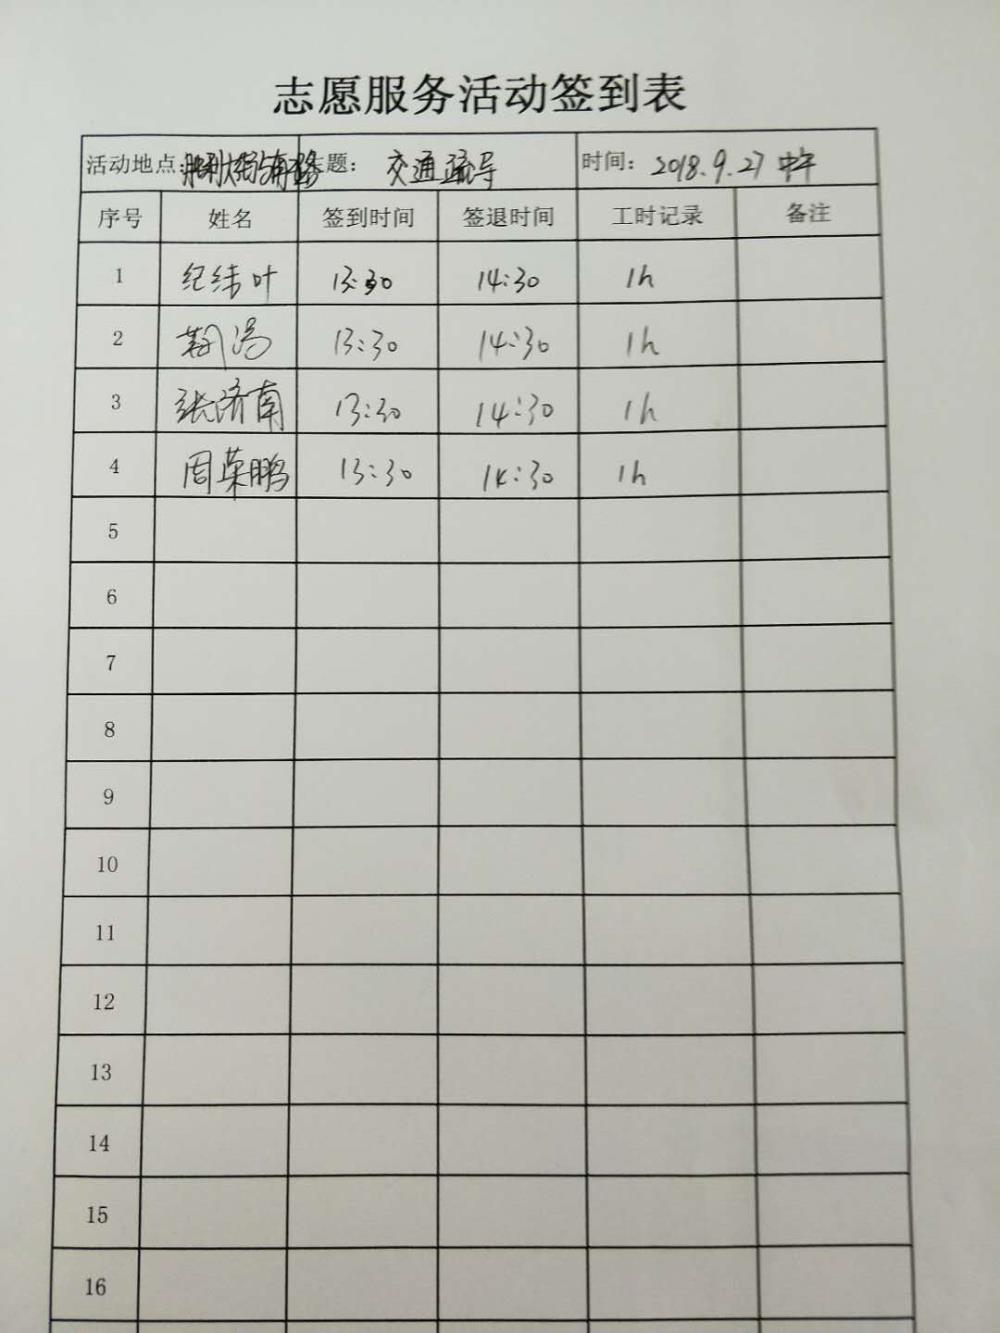 志愿服务活动签到表
活动地点: 胜利大街与南 路 主题: 交通疏导 时间: 2018.9.27 中午
序号 姓名 签到时间 签退时间 工时记录 备注
1 纪 叶 13:30 14:30 1h
2 13:30 14:30 1h
3 张济南 13:30 14:30 1h
4 周荣鹏 13:30 14:30 1h
5
6
7
8
9
10
11
12
13
14
15
16